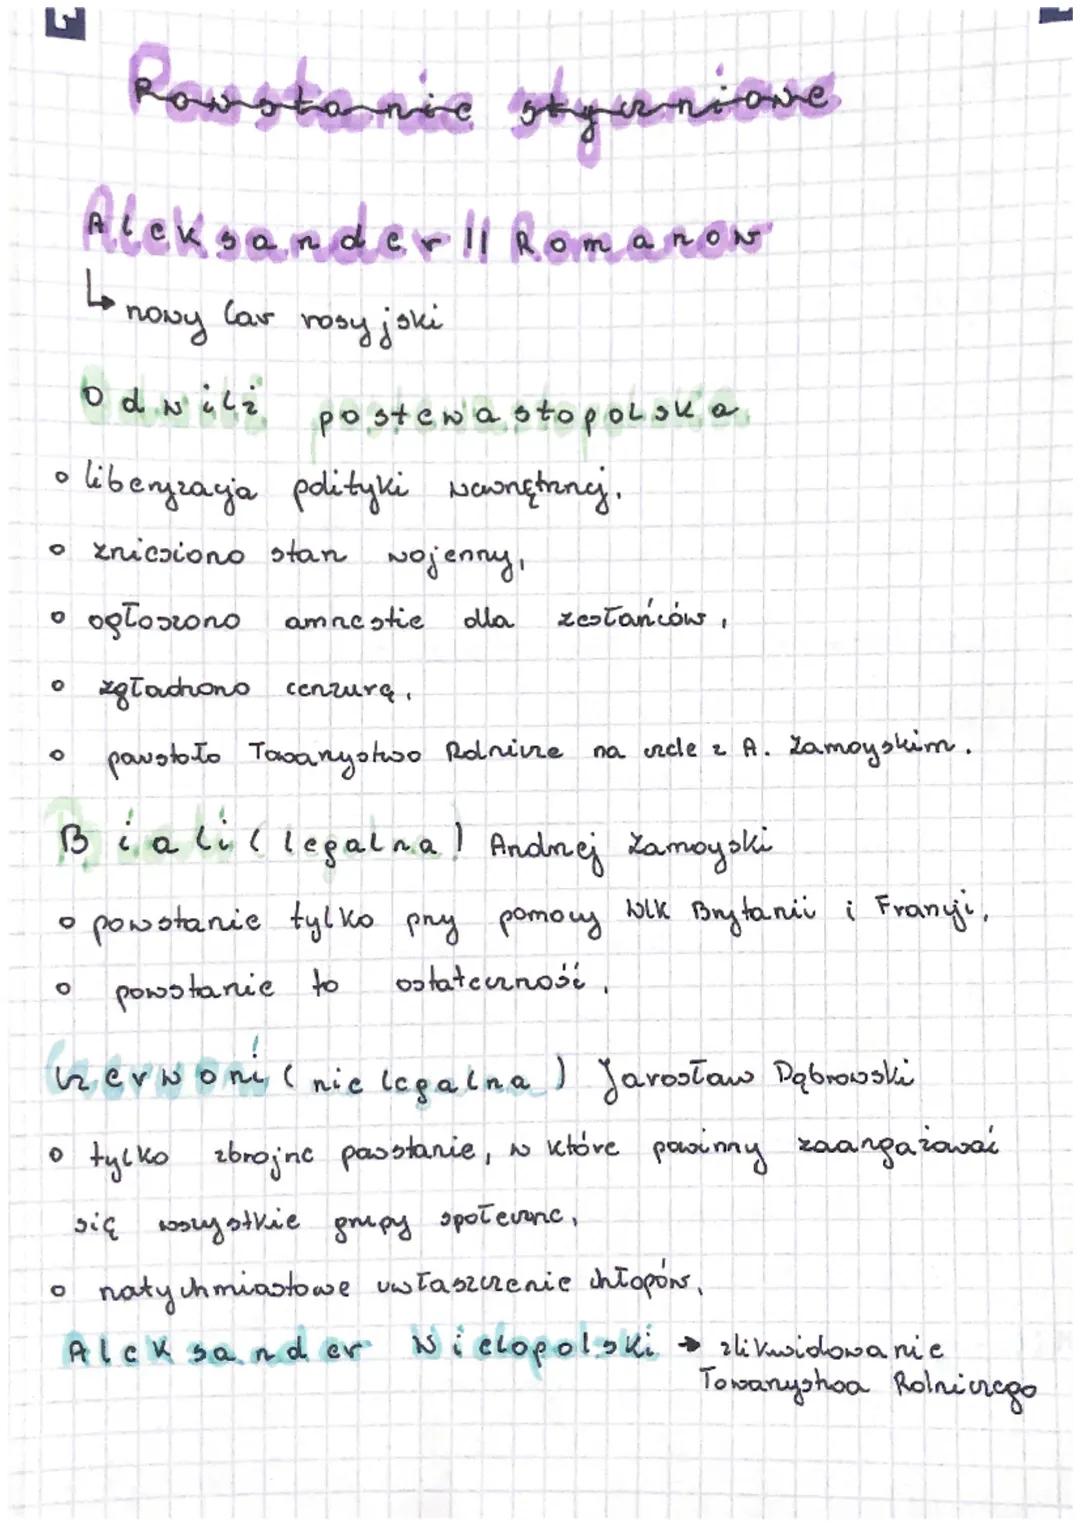 Powstanie styczniowe
Aleksander II Romanow
↳ nowy Car rosyjski
Odwilż postewastopolska
• liberyzacja polityki wewnętrznej,
• zniesiono stan wojenny,
• ogłoszono amnestie dla zesłańców,
• zgładzono cenzurę,
• powstało Towarzystwo Rolnicze na czele z A. Zamoyskim.
Biali (legalna) Andrzej Zamoyski
• powstanie tylko przy pomocy Wlk Brytanii i Francji,
• powstanie to ostateczność,
Czerwoni (nie legalna) Jarosław Dąbrowski
• tylko zbrojne powstanie, w które powinny zaangażować
się wszystkie grupy społeczne,
• natychmiastowe uwłaszczenie chłopów,
Aleksander Wielopolski → zlikwidowanie
Towarzystwa Rolniczego